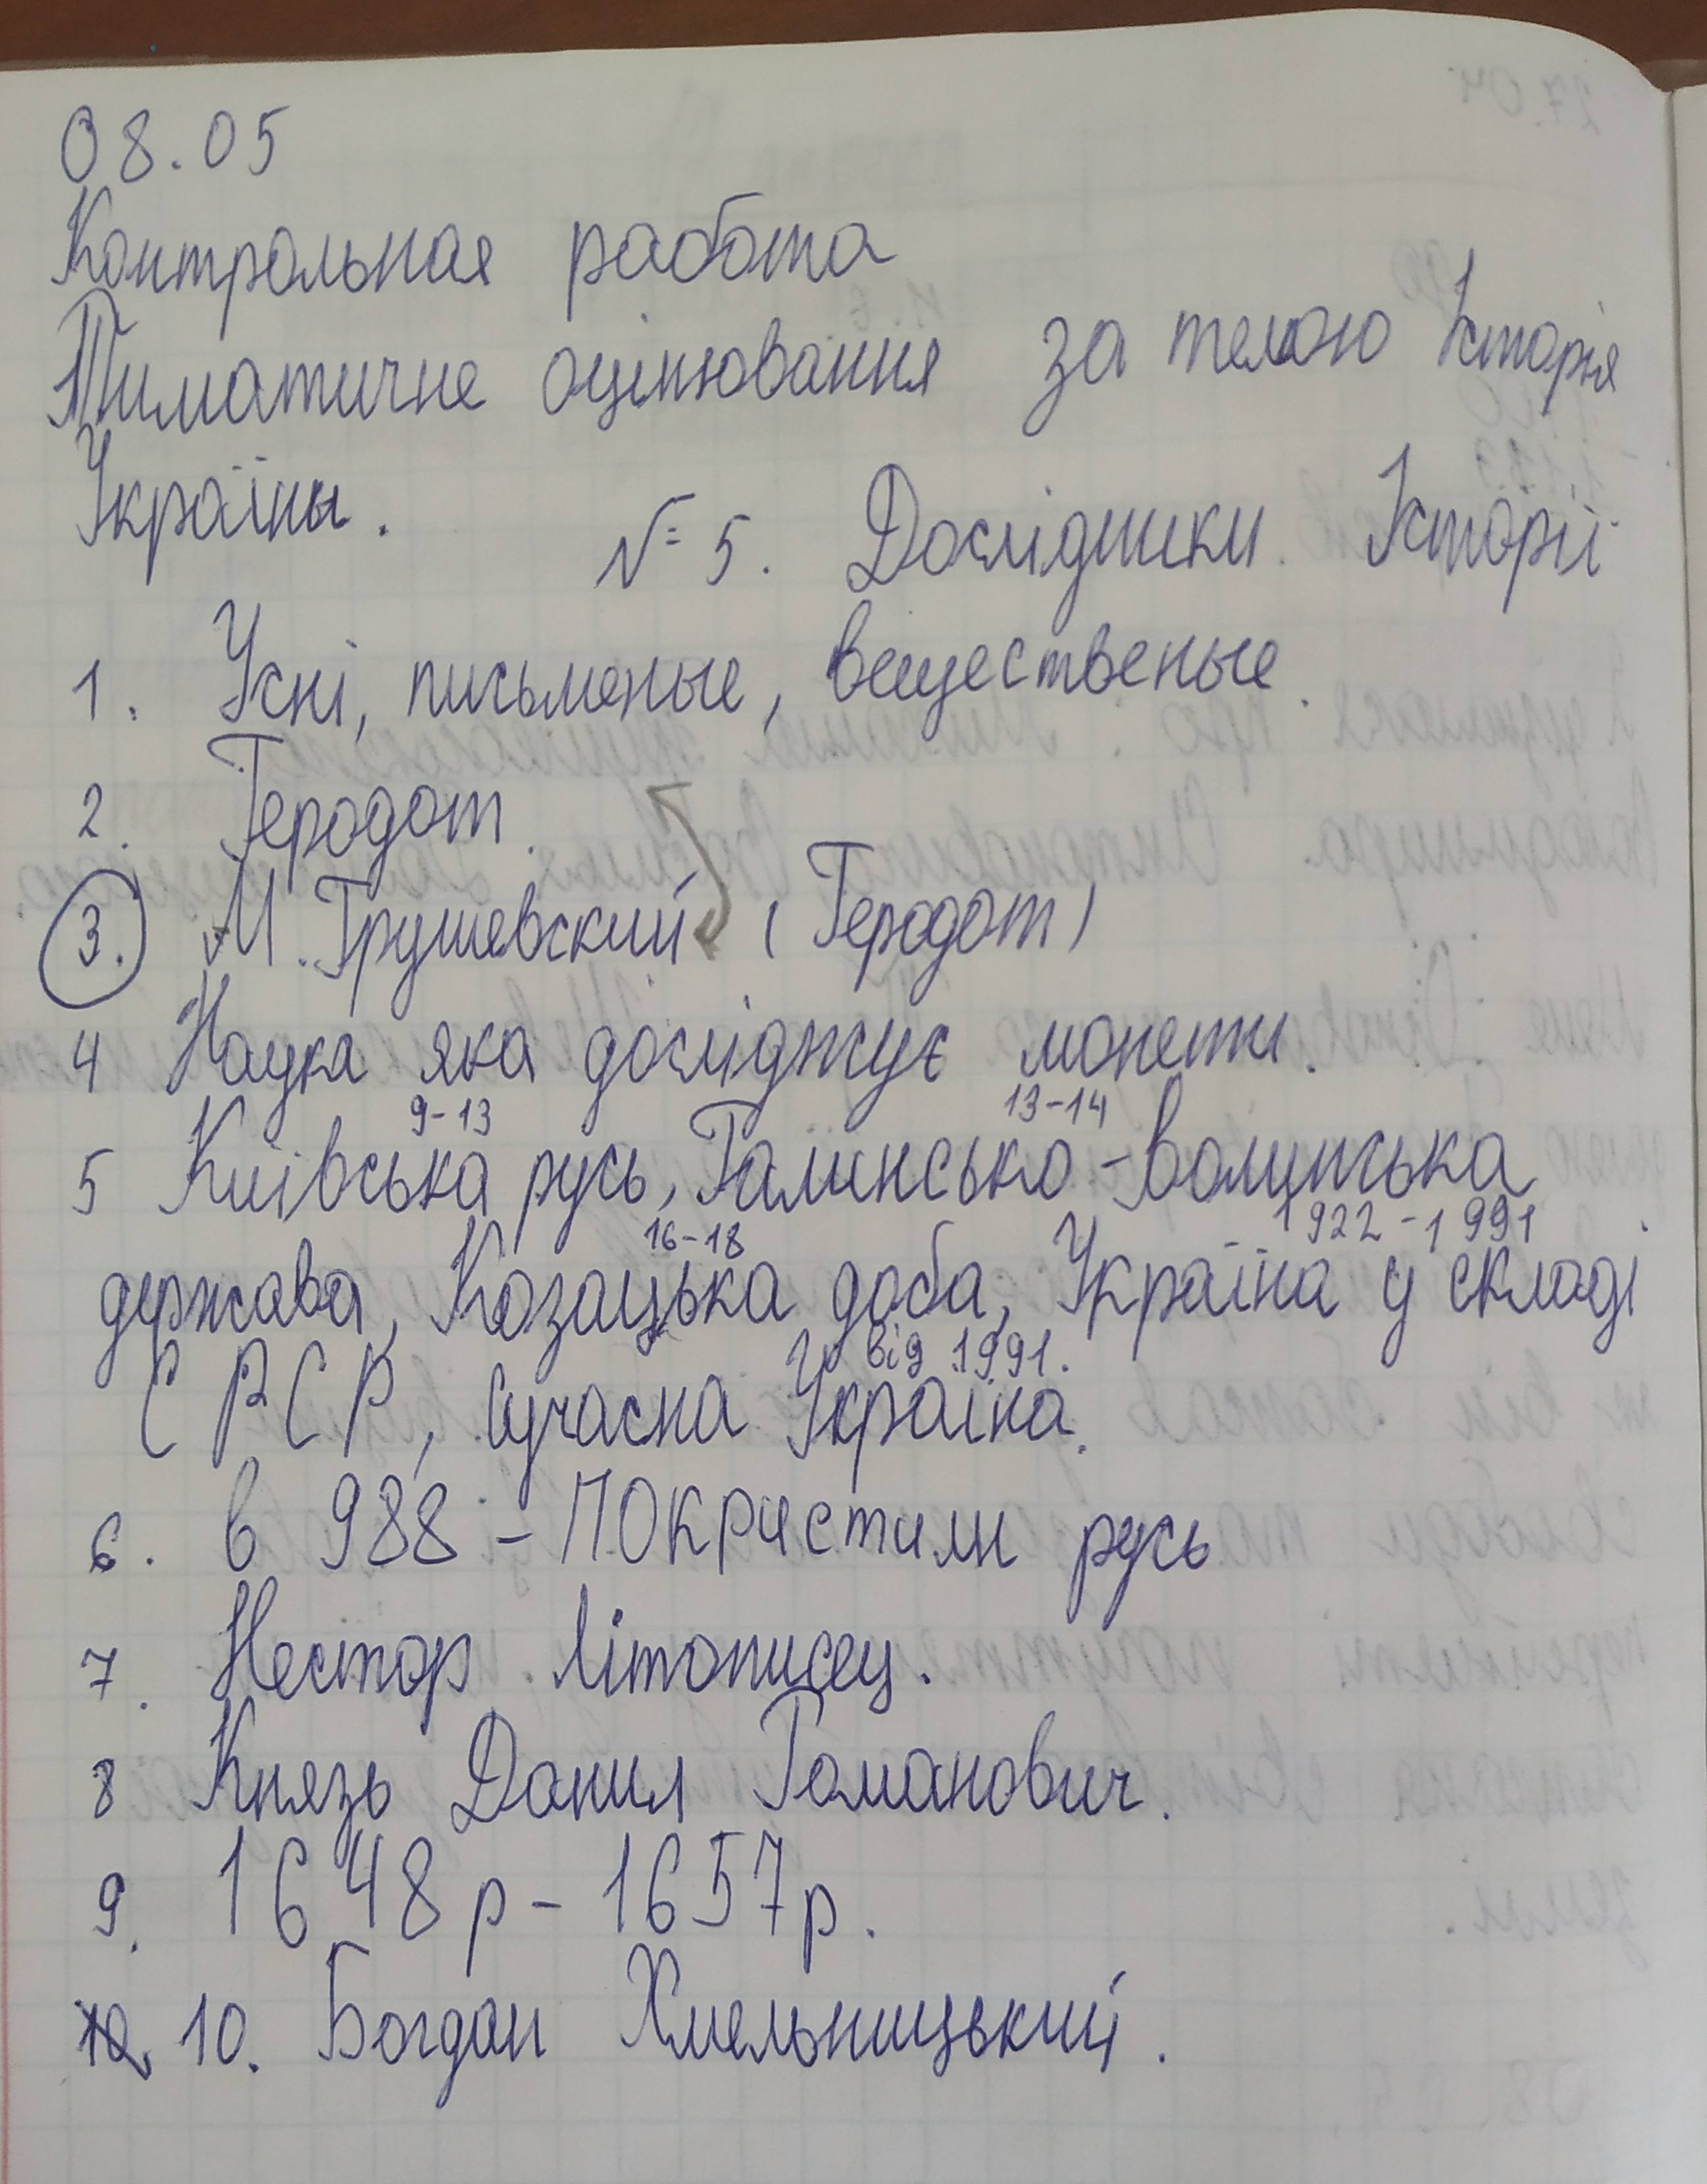 08.05
Контрольная работа
Тиматичне оцінювання за темою Історія
Україны.
№ 5. Дослідники Історії
1. Усні, письменые, вещественые.
2. Геродот.
3. М. Грушевский (Геродот)
4 Наука яка досліджує монети.
9-13 13-14
5 Київська русь, Галинсько-волинська
16-18 1922-1991
держава, Козацька доба, Україна у складі
від 1991.
СРСР, Сучасна Україна.
6. в 988 - ПОКристили русь
7. Нестор Літописец.
8 Князь Данил Романович.
9. 1648р - 1657р.
10. Богдан Хмельницький.